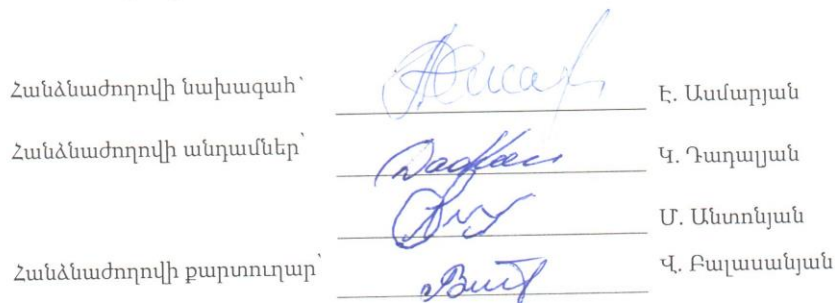 Հանձնաժողովի նախագահ՝ Է. Ասմարյան
Հանձնաժողովի անդամներ՝ Կ. Դադալյան
Մ. Անտոնյան
Հանձնաժողովի քարտուղար՝ Վ. Բալասանյան